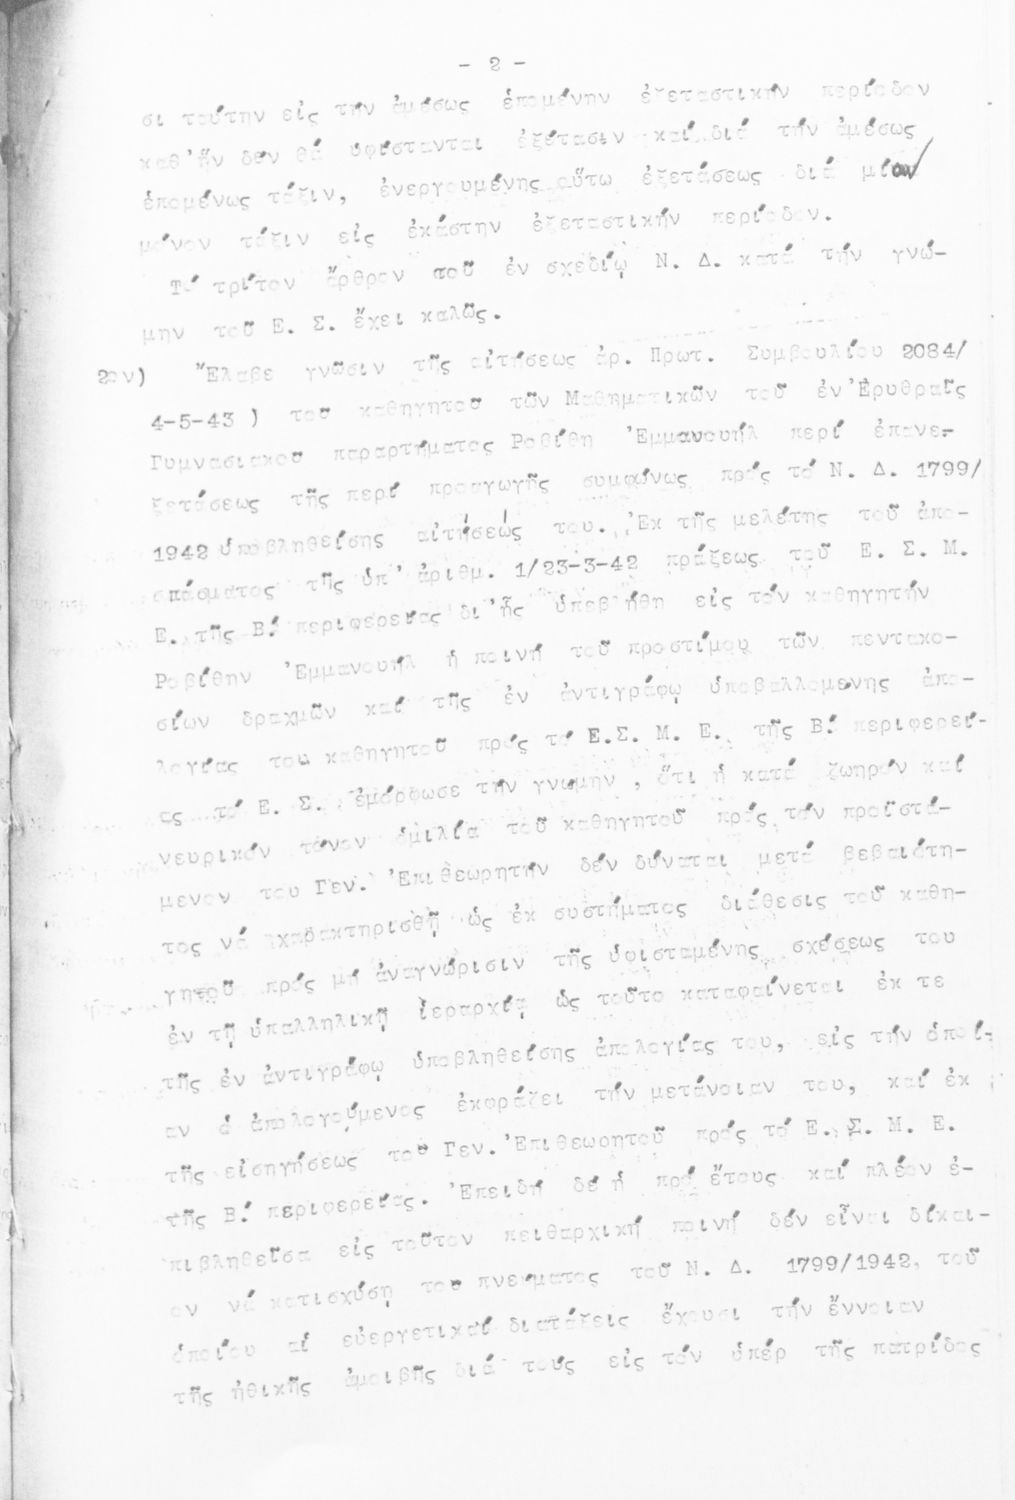 - 2 -
σι ταύτην εἰς τήν ἀμέσως ἑπομένην ἐξεταστικήν περίοδον
καθ'ἥν δέν θά ὑφίστανται ἐξέτασιν καί διά τήν ἀμέσως
ἑπομένως τάξιν, ἐνεργουμένης οὕτω ἐξετάσεως διά μίαν
μόνον τάξιν εἰς ἑκάστην ἐξεταστικήν περίοδον.
Τό τρίτον ἄρθρον τοῦ ἐν σχεδίῳ Ν. Δ. κατά τήν γνώ-
μην τοῦ Ε. Σ. ἔχει καλῶς.
2ον) Ἔλαβε γνῶσιν τῆς αἰτήσεως ἀρ. Πρωτ. Συμβουλίου 2084/
4-5-43 ) του καθηγητοῦ τῶν Μαθηματικῶν τοῦ ἐν Ἐρυθραῖς
Γυμνασιακοῦ παραρτήματος Ροβίθη Ἐμμανουήλ περί ἐπανε-
ξετάσεως τῆς περί προαγωγῆς συμφώνως πρός τό Ν. Δ. 1799/
1942 ὑποβληθείσης αἰτήσεώς του. Ἐκ τῆς μελέτης τοῦ ἀπο-
σπάσματος τῆς ὑπ' ἀριθμ. 1/23-3-42 πράξεως τοῦ Ε. Σ. Μ.
Ε. τῆς Β.' περιφερείας δι'ἧς ὑπεβλήθη εἰς τόν καθηγητήν
Ροβίθην Ἐμμανουήλ ἡ ποινή τοῦ προστίμου τῶν πεντακο-
σίων δραχμῶν καί τῆς ἐν ἀντιγράφῳ ὑποβαλλομενης ἀπο-
λογίας του καθηγητοῦ πρός τό Ε.Σ. Μ. Ε. τῆς Β.' περιφερεί-
ας τό Ε. Σ. ἐμόρφωσε τήν γνωμην , ὅτι ἡ κατά ζωηρόν καί
νευρικόν τόνον ὁμιλία τοῦ καθηγητοῦ πρός τόν προϊστά-
μενον του Γεν. Ἐπιθεωρητήν δέν δύναται μετά βεβαιότη-
τος νά χαρακτηρισθῇ ὡς ἐκ συστήματος διάθεσις τοῦ καθη-
γητοῦ πρός μή ἀναγνώρισιν τῆς ὑφισταμένης σχέσεως του
ἐν τῇ ὑπαλληλικῇ ἱεραρχίᾳ ὡς τοῦτο καταφαίνεται ἐκ τε
τῆς ἐν ἀντιγράφῳ ὑποβληθείσης ἀπολογίας του, εἰς τήν ὁποί-
αν ὁ ἀπολογούμενος ἐκφράζει τήν μετάνοιαν του, καί ἐκ
τῆς εἰσηγήσεως τοῦ Γεν. Ἐπιθεωρητοῦ πρός τό Ε. Σ. Μ. Ε.
τῆς Β.' περιφερείας. Ἐπειδή δέ ἡ πρό ἔτους καί πλέον ἐ-
πιβληθεῖσα εἰς τοῦτον πειθαρχική ποινή δέν εἶναι δίκαι-
ον νά κατισχύσῃ του πνεύματος τοῦ Ν. Δ. 1799/1942, τοῦ
ὁποίου αἱ εὐεργετικαί διατάξεις ἔχουσι τήν ἔννοιαν
τῆς ἠθικῆς ἀμοιβῆς διά τούς εἰς τόν ὑπέρ τῆς πατρίδος